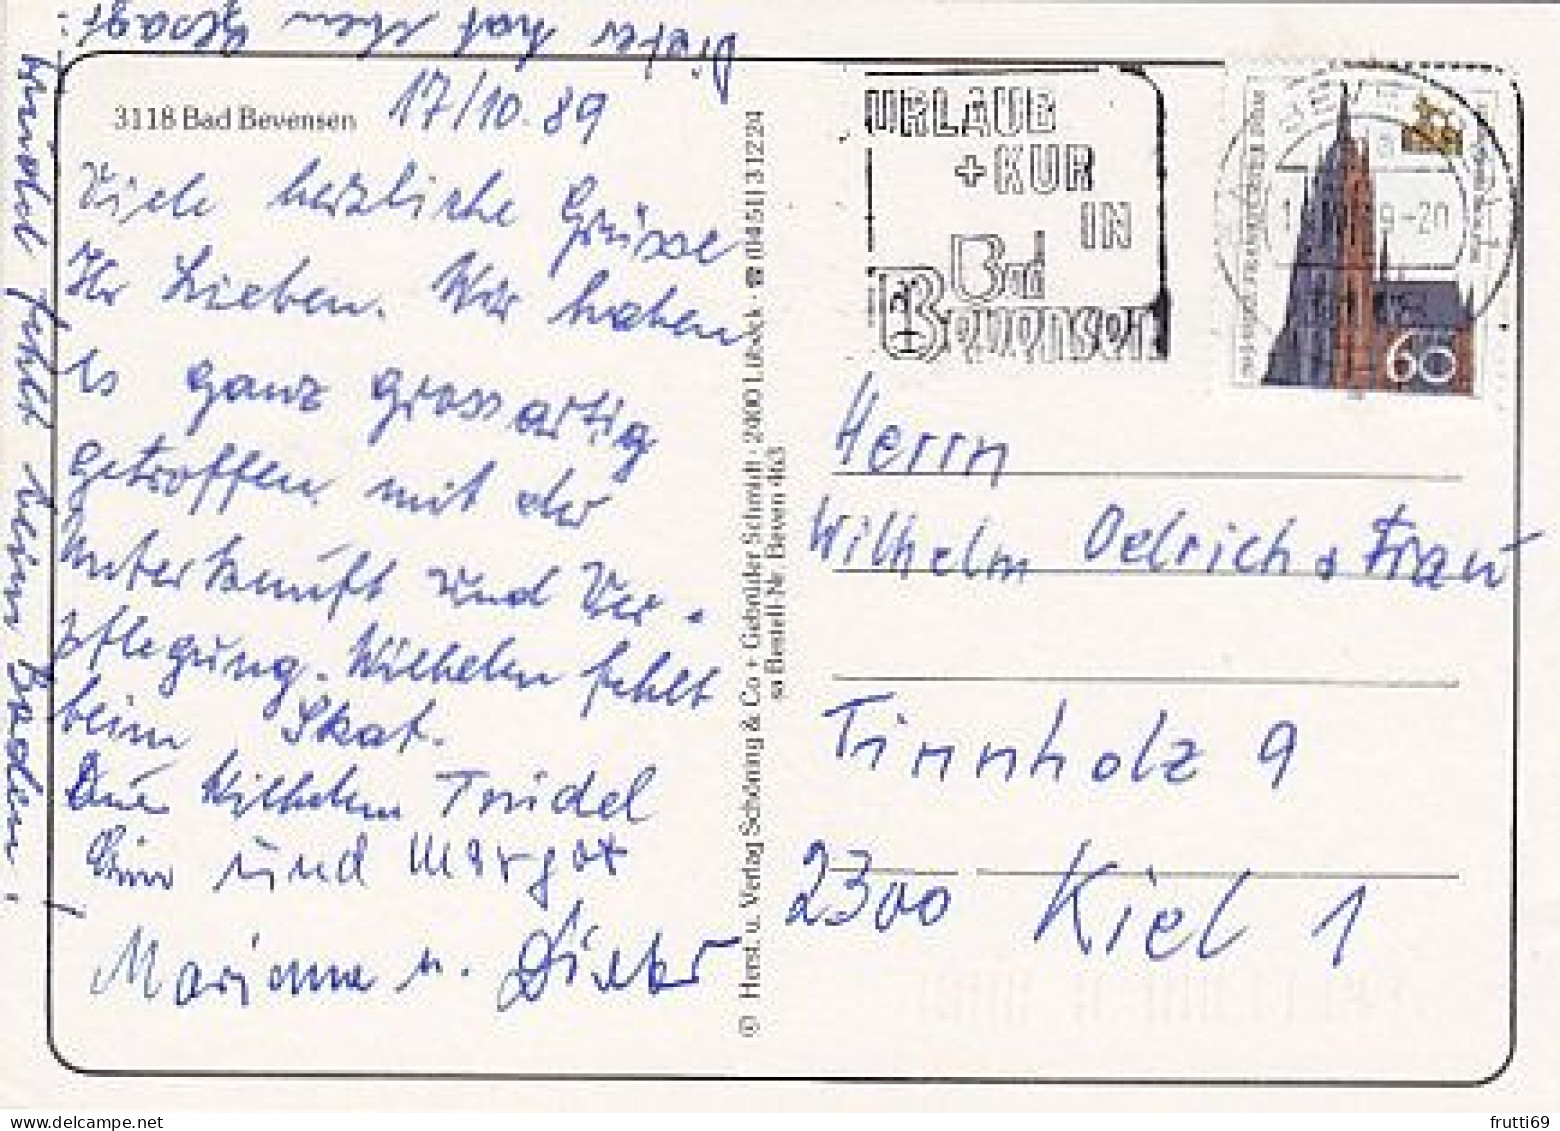 Dieter hat eben gesagt:
Wilhelm fehlt beim Baden!
3118 Bad Bevensen 17/10.89
Viele herzliche Grüsse
Ihr Lieben. Wir haben
es ganz grossartig
getroffen mit der
Unterkunft und Ver-
pflegung. Wilhelm fehlt
beim Skat.
Wilhelm Trudel
und Margot
Marianne u. Dieter
© Herst. u. Verlag Schöning & Co + Gebrüder Schmidt · 2400 Lübeck · ☎ (0451) 3 12 24
Bestell-Nr. Beven 463
URLAUB
+ KUR
IN
Bad
Bevensen
9-20
60
Herrn
Wilhelm Oelrich + Frau
Tinnholz 9
2300 Kiel 1
frutti69